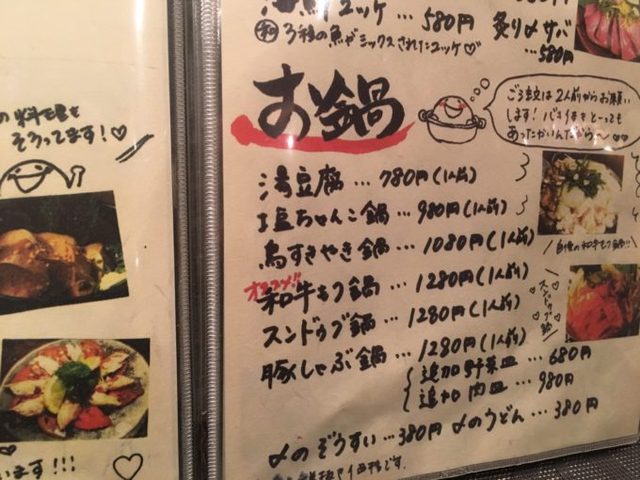 の料理も
そろってます!♡
います!!!
海鮮ユッケ…580円
㋾3種の魚がミックスされたユッケ♡
炙り〆サバ
…580円
お鍋
ご注文は2人前からお願い
します!
あったかいんだから〜♡♡
湯豆腐…780円(1人前)
塩ちゃんこ鍋…980円(1人前)
鳥すきやき鍋…1080円(1人前)
オススメ!!
和牛もつ鍋…1280円(1人前)
スンドゥブ鍋…1280円(1人前)
豚しゃぶ鍋…1280円(1人前)
追加野菜皿…680円
追加肉皿…980円
〆のぞうすい…380円 〆のうどん…380円
自慢の和牛もつ鍋!!
スンドゥブ鍋
税抜き価格です。